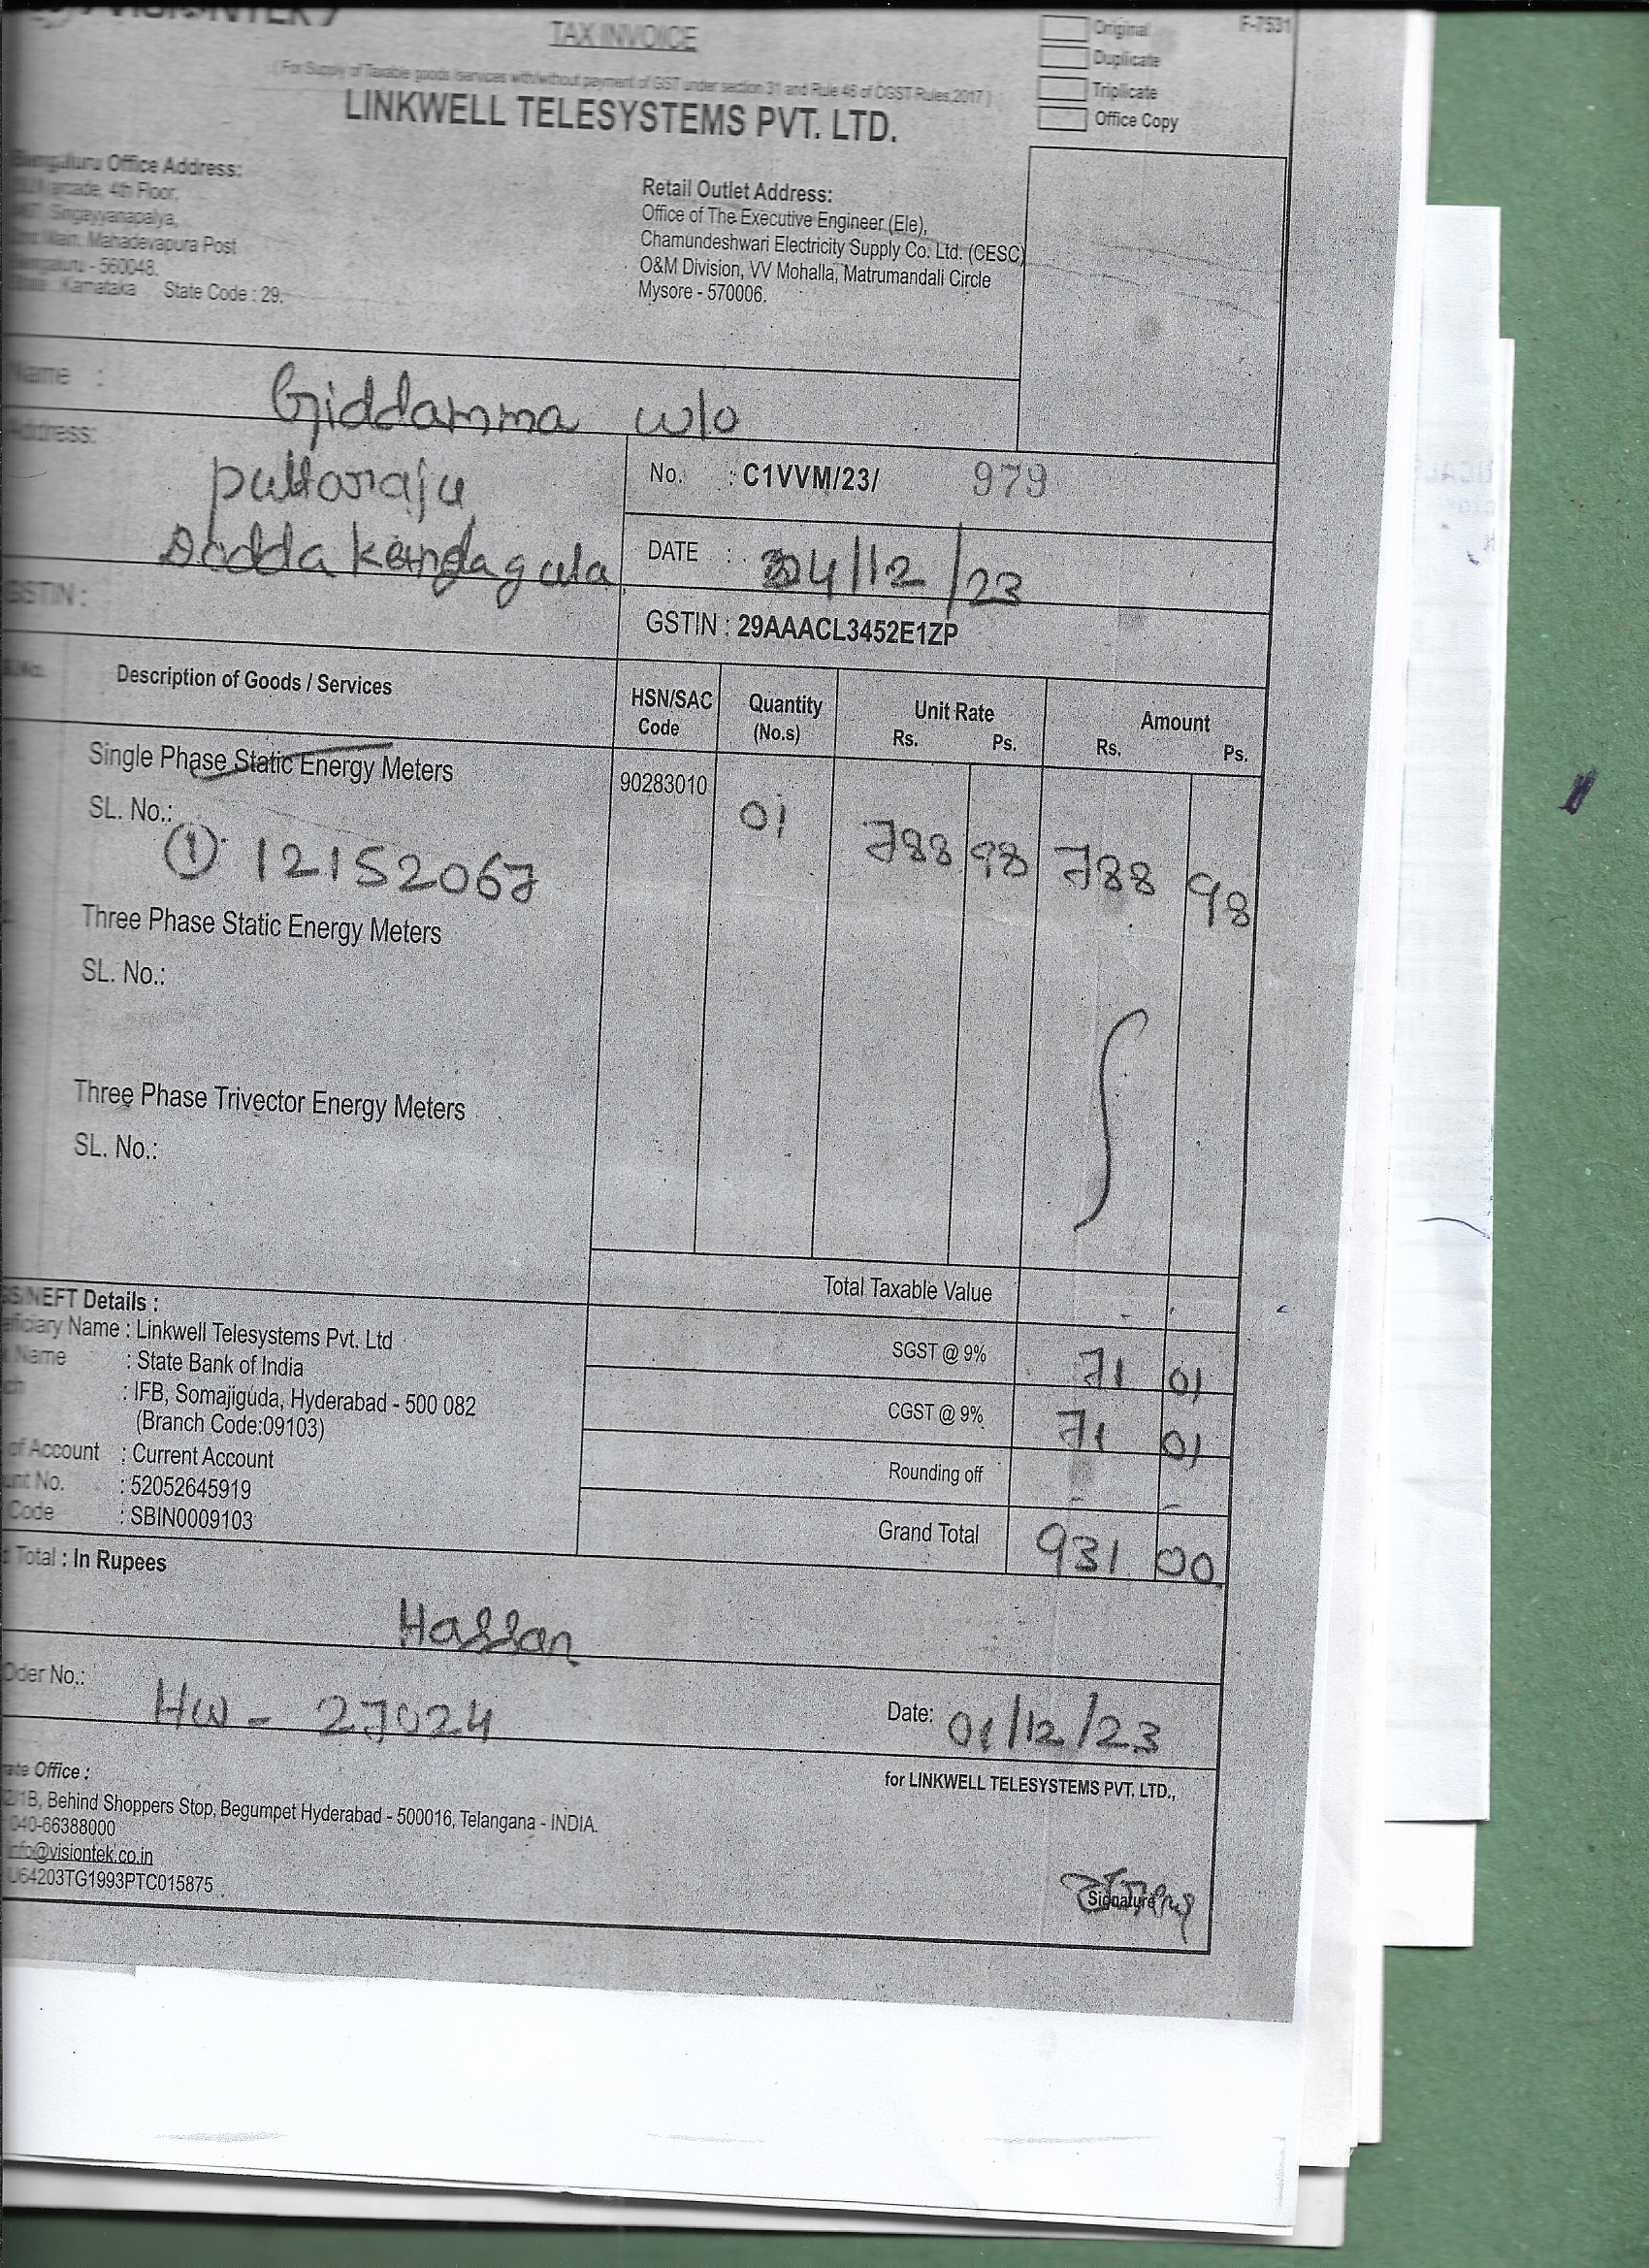 VISIONTEK
TAX INVOICE
Original
F-7531
Duplicate
Triplicate
Office Copy
( For Supply of Taxable goods /services with/without payment of GST under section 31 and Rule 46 of CGST Rules,2017 )
LINKWELL TELESYSTEMS PVT. LTD.
Bengaluru Office Address:
arcade, 4th Floor,
Singayyanapalya,
Main, Mahadevapura Post
Bengaluru - 560048.
Karnataka State Code : 29.
Retail Outlet Address:
Office of The Executive Engineer (Ele),
Chamundeshwari Electricity Supply Co. Ltd. (CESC)
O&M Division, VV Mohalla, Matrumandali Circle
Mysore - 570006.
Name : Giddamma w/o
Address: puttaraju
Dodda
No. : C1VVM/23/ 979
DATE : 04/12/23
GSTIN :
GSTIN : 29AAACL3452E1ZP
Sl.No. Description of Goods / Services HSN/SAC Code Quantity (No.s) Unit Rate Rs. Ps. Amount Rs. Ps.
Single Phase Static Energy Meters 90283010 01 788 98 788 98
SL. No.:
① 12152067
Three Phase Static Energy Meters
SL. No.:
Three Phase Trivector Energy Meters
SL. No.:
Total Taxable Value - -
SGST @ 9% 71 01
CGST @ 9% 71 01
Rounding off - -
Grand Total 931 00
S/NEFT Details :
ficiary Name : Linkwell Telesystems Pvt. Ltd
Name : State Bank of India
: IFB, Somajiguda, Hyderabad - 500 082
(Branch Code:09103)
of Account : Current Account
unt No. : 52052645919
Code : SBIN0009103
Total : In Rupees
Hassan
Oder No.: HW - 27024
Date: 01/12/23
ate Office :
for LINKWELL TELESYSTEMS PVT. LTD.,
2/1B, Behind Shoppers Stop, Begumpet Hyderabad - 500016, Telangana - INDIA.
040-66388000
info@visiontek.co.in
U64203TG1993PTC015875
Signature